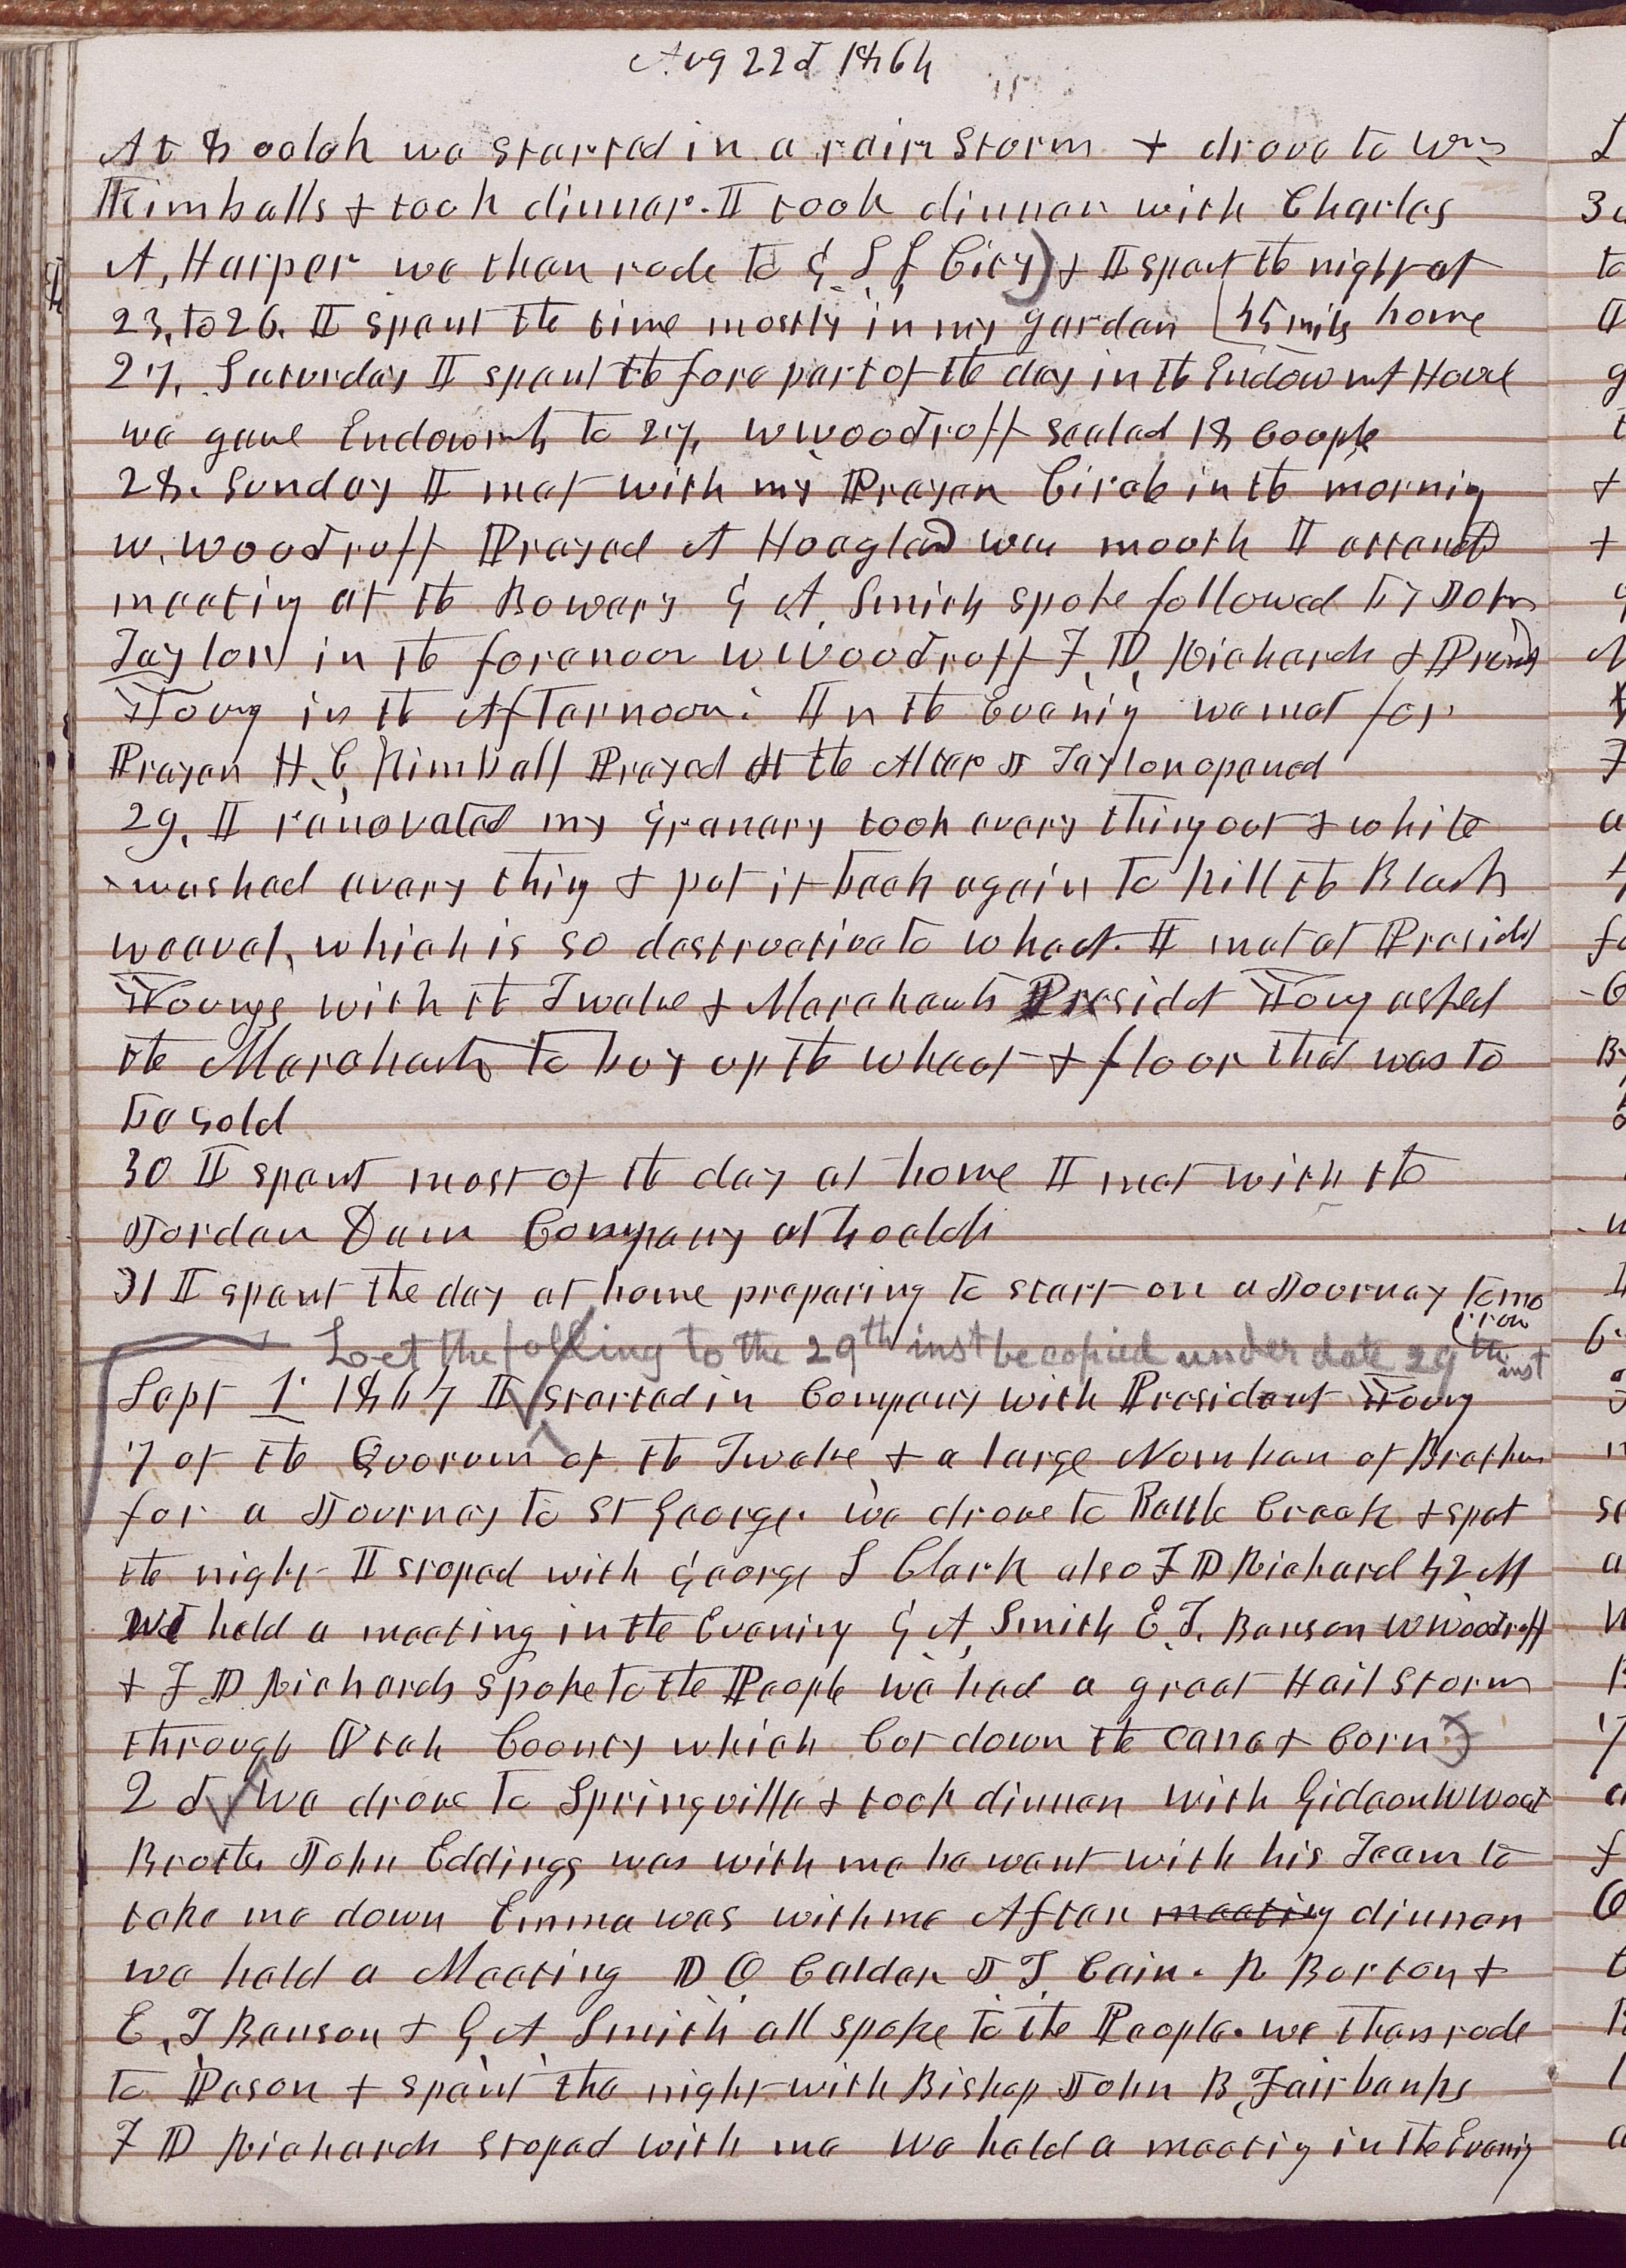 Aug 22d 1864
At 8 oclok we started in a rain storm & drove to Wm
Kimballs & took dinner. I took dinner with Charles
A, Harper we then rode to G. S. L City & I spent the night at
23, to 26. I spent the time mostly in my garden 45 mils home
27, Saturday I spent the fore part of the day in the Endowmt House
we gave Endowmts to 27, W Woodruff sealed 18 Couple
28. Sunday I met with my Prayer Circle in the mornig
W. Woodruff Prayed A Hoagland was mouth I attended
meetig at the Bowery G A, Smith spoke followed by John
Taylor in the forenoon W Woodruff F, D, Richards & Presidt
Young in the Afternoon. In the Evenig we met for
Prayer H. C, Kimball Prayed At the Alter J Taylor opened
29, I renovated my Granary took every thing out & white
washed every thig & put it back again to kill the Black
weavel, which is so destructive to wheat. I met at Presidet
Youngs with the Twelve & Merchants Presidet Young asked
the Merchants to buy up the wheat & flour that was to
be sold
30 I spent most of the day at home I met with the
Jordan Dam Company at 4 oclok
31 I spent the day at home preparing to start on a Journey tomo
rrow
Let the folling to the 29th inst be copied under date 29th inst
Sept 1. 1864 I started in Company with President Young
7 of the Quorum of the Twelve & a large Number of Brethen
for a Journey to St George. we drove to Battle Creek & spet
the night I stoped with George S Clark also F D Richard 42 M
We held a meeting in the Evenig G A, Smith E. T. Benson W Woodruff
& F D Richards spoke to the People we had a great Hail storm
through Utah County which Cut down the cane & Corn
2d We drove to Springville & took dinner with Gideon W Wood
Brother John Eddings was with me he went with his Team to
take me down Emma was with me After meetig dinner
we held a Meeting D. O. Calder J T. Cain. R Burton &
E, T, Benson & G. A, Smith all spoke to the People. we then rode
to Pason & spent the night with Bishop John B, Fairbanks
F D Richards stoped with me We held a meetig in the Evenig